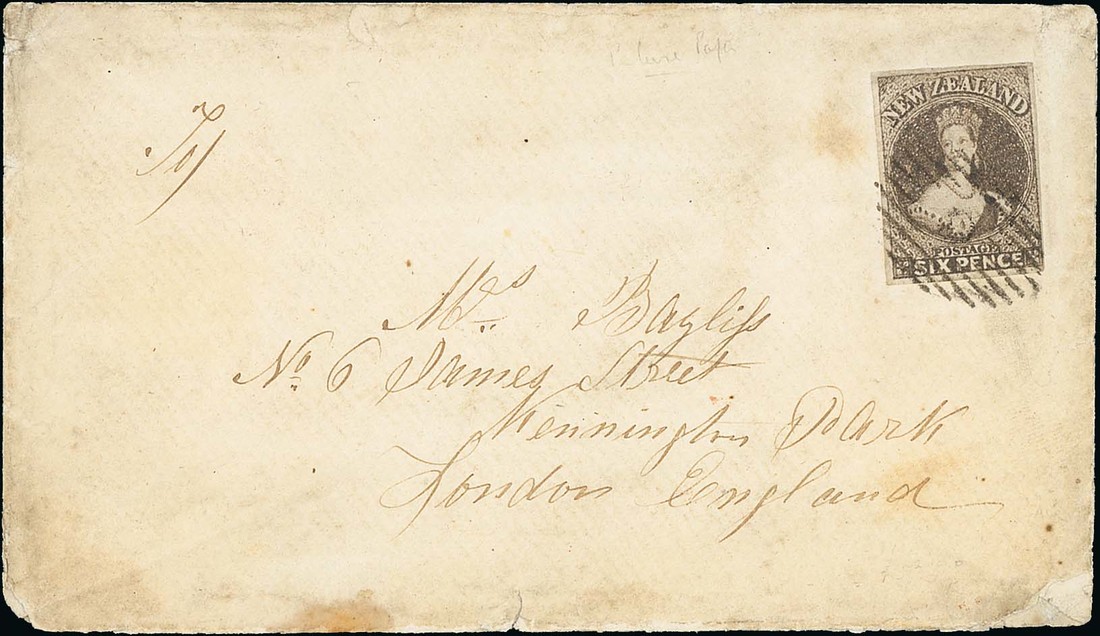 Pelure Paper
NEW ZEALAND
POSTAGE
SIX PENCE
To/
Mrs. Bayliſs
No. 6 James Street
Kennington Park
London England